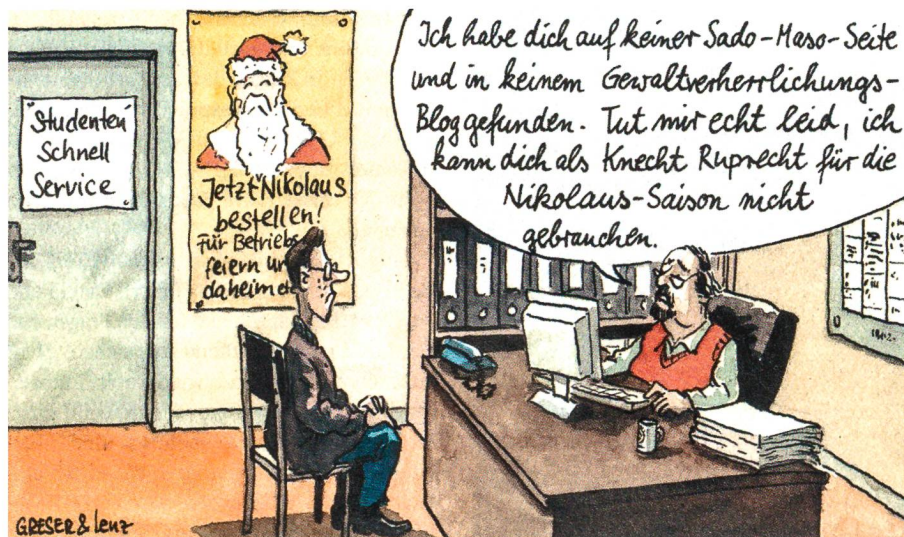 Studenten
Schnell
Service
Jetzt Nikolaus
bestellen!
Für Betriebs
feiern
daheim
Ich habe dich auf keiner Sado-Maso-Seite
und in keinem Gewaltverherrlichungs-
Blog gefunden. Tut mir echt leid, ich
kann dich als Knecht Ruprecht für die
Nikolaus-Saison nicht
gebrauchen.
GRESER & Lenz